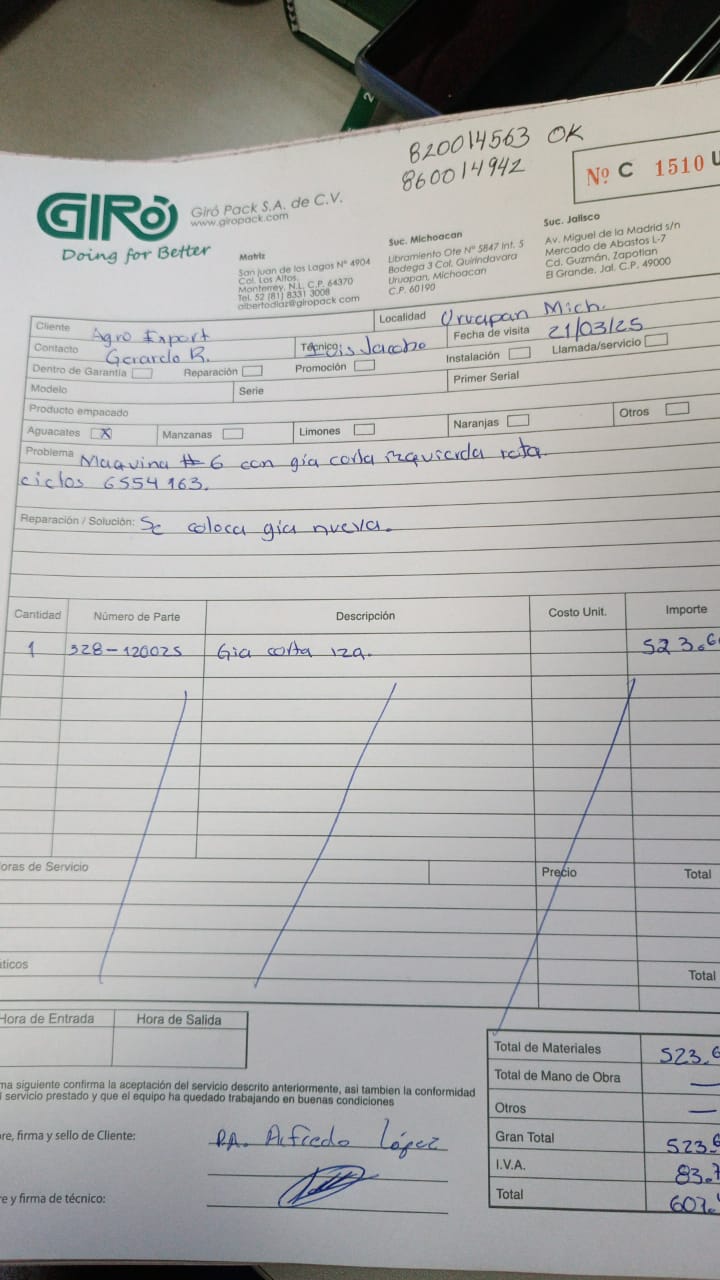 820014563 OK
860014942
Nº C 1510 U
GIRÒ
Doing for Better
Giró Pack S.A. de C.V.
www.giropack.com
Matriz
San juan de los Lagos Nº 4904
Col. Los Altos,
Monterrey, N.L. C.P. 64370
Tel. 52 (81) 8331 3008
albertodiaz@giropack.com
Suc. Michoacan
Libramiento Ote Nº 5847 Int. 5
Bodega 3 Col. Quirindavara
Uruapan, Michoacan
C.P. 60190
Suc. Jalisco
Av. Miguel de la Madrid s/n
Mercado de Abastos L-7
Cd. Guzmán, Zapotlan
El Grande, Jal. C.P. 49000
Cliente Agro Export Localidad Uruapan Mich.
Contacto Gerardo B. Técnico: Luis Jacobo Fecha de visita 21/03/25
Dentro de Garantía Reparación Promoción Instalación Llamada/servicio
Modelo Serie Primer Serial
Producto empacado
Aguacates X Manzanas Limones Naranjas Otros
Problema Maquina #6 con gia corta izquierda rota.
ciclos 6554163.
Reparación / Solución: Se coloca gia nueva.
Cantidad Número de Parte Descripción Costo Unit. Importe
1 328-12002S Gia corta izq. 523.6
oras de Servicio Precio Total
ticos Total
Hora de Entrada Hora de Salida
Total de Materiales 523.6
Total de Mano de Obra —
Otros —
Gran Total 523.6
I.V.A. 83.7
Total 607.
ma siguiente confirma la aceptación del servicio descrito anteriormente, asi tambien la conformidad
l servicio prestado y que el equipo ha quedado trabajando en buenas condiciones
re, firma y sello de Cliente: P.A. Alfredo López
e y firma de técnico: